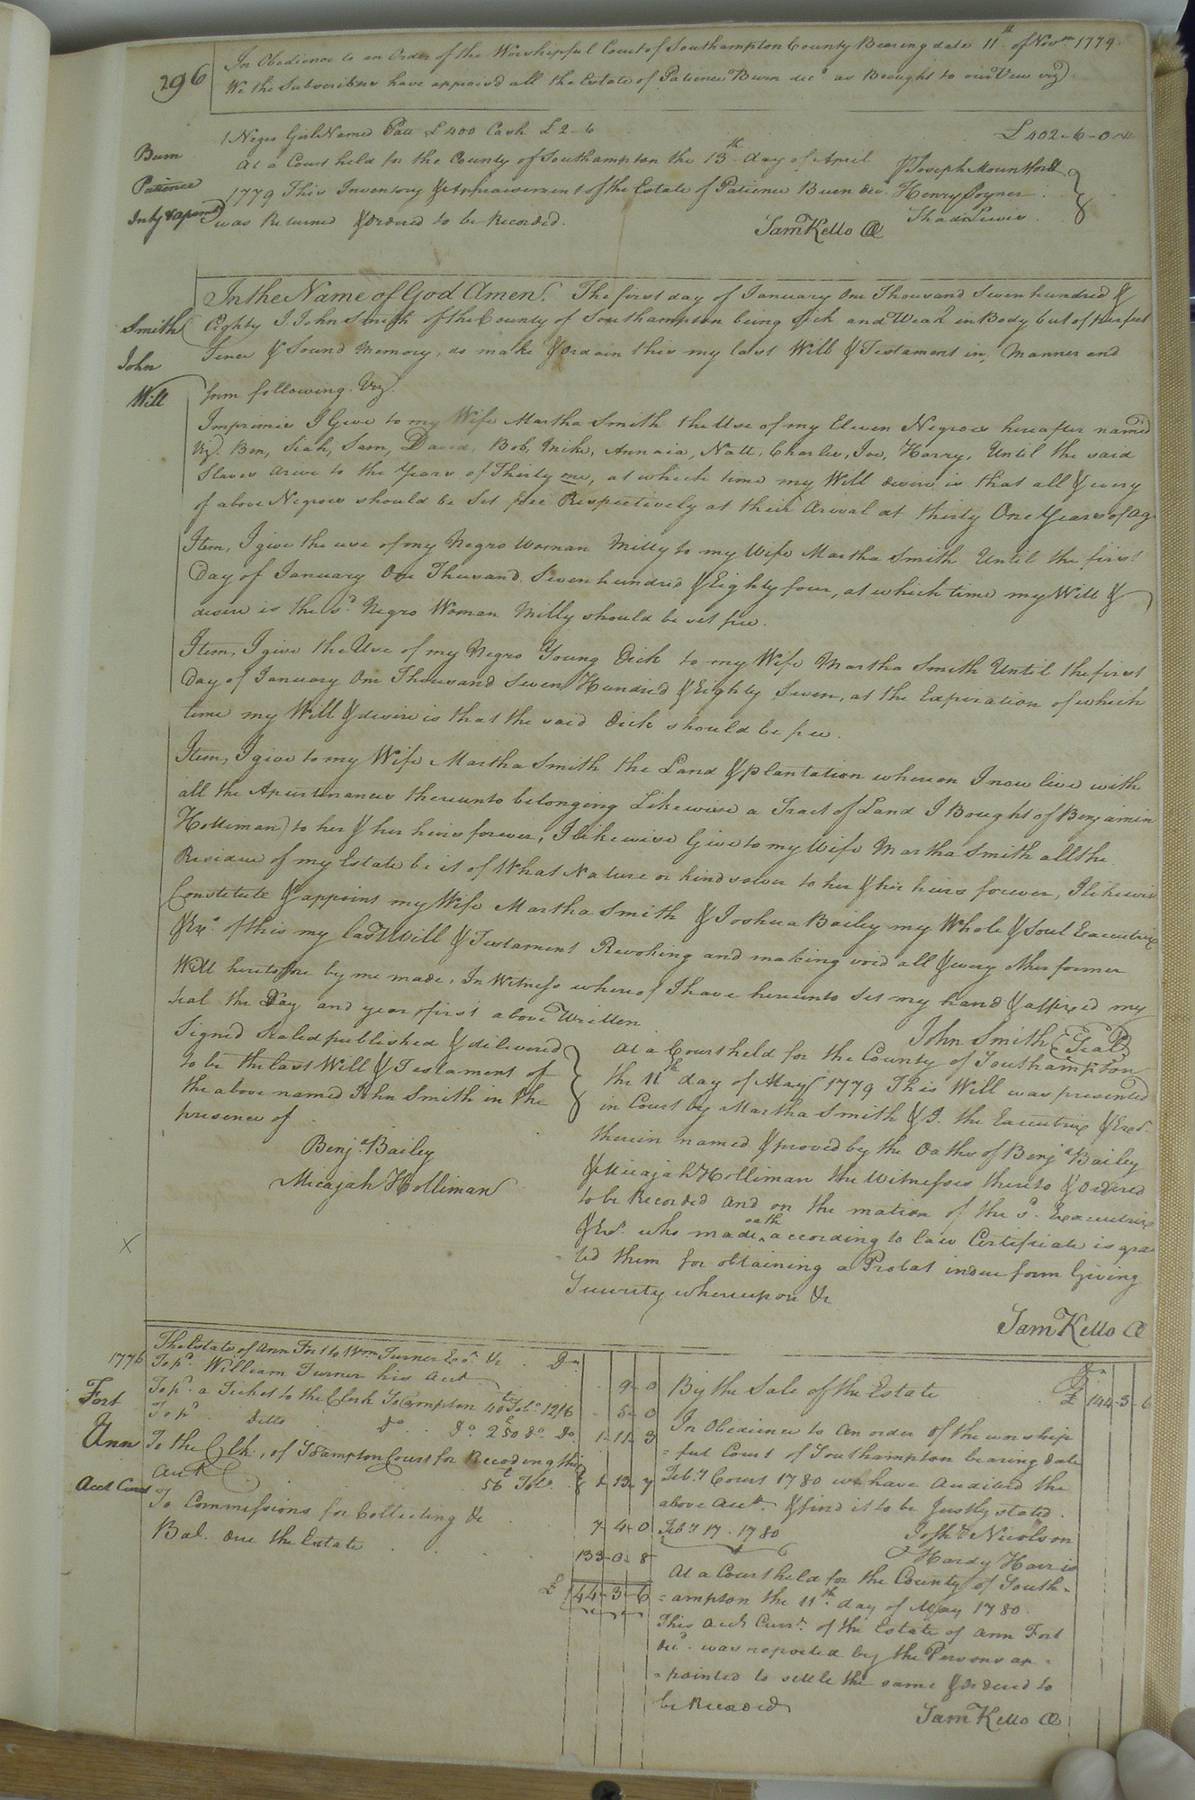 296
In Obedience to an Order of the Worshipful Court of Southampton County Bearing date 11th of Novr 1779
We the Subscribers have appraised all the Estate of Patience Burn decd as Brought to our View vizt
1 Negro Girl Named Patt £400 Cash £2-6 £402-6-0
Burn
Patience
Inty & apmt
At a Court held for the County of Southampton the 13th day of April
1779 This Inventory & Appraisement of the Estate of Patience Burn decd
was Returned & Ordered to be Recorded.
Joseph Mountfort
Henry Joyner
Shadk Lewis
Saml Kello CC
Smith
John
Will
In the Name of God Amen. The first day of January One Thousand Seven hundred &
Eighty I John Smith of the County of Southampton being Sick and Weak in Body but of perfect
Sence & Sound Memory, do make & ordain this my last Will & Testament in, Manner and
form following. Viz.
Imprimis I Give to my Wife Martha Smith the Use of my Eleven Negroes hereafter named
Viz. Ben, Siah, Sam, David, Bob, Mike, Annaia, Natt, Charles, Joe, Harry, Until the said
Slaves arive to the Years of Thirty one, at which time my Will desire is that all & every
of above Negroes should be Set free Respectively at their Arival at thirty One Years of Age
Item, I give the use of my Negro Woman Milly to my Wife Martha Smith Until the first
Day of January One Thousand Seven hundred & Eighty four, at which time my Will &
desire is the sd Negro Woman Milly should be set free.
Item, I give the Use of my Negro Young Dick to my Wife Martha Smith Until the first
Day of January One Thousand Seven Hundred & Eighty Seven, at the Expiration of which
time my Will & desire is that the said Dick should be free.
Item, I give to my Wife Martha Smith the Land & plantation whereon I now live with
all the Apurtenances thereunto belonging Likewise a Tract of Land I Bought of Benjamin
Holliman to her & her heirs forever, I likewise Give to my Wife Martha Smith all the
Residue of my Estate be it of What Nature or kind soever to her & her heirs forever, I likewise
Constitute & appoint my Wife Martha Smith & Joshua Bailey my Whole & Soul Executrix
& Exr of this my last Will & Testament Revoking and making void all & every other former
Will heretofore by me made, In Witness whereof I have hereunto Set my hand & affixed my
seal the Day and year first above Written
John Smith (Seal)
Signed Sealed published & delivered
to be the last Will & Testament of
the above named John Smith in the
presence of
Benja Bailey
Micajah Holliman
At a Court held for the County of Southampton
the 11th day of May 1779 This Will was presented
in Court by Martha Smith & J. the Executrix & Exr
therein named & proved by the Oaths of Benja Bailey
& Micajah Holliman the Witnesses thereto & Ordered
to be Recorded and on the motion of the sd Executrix
& Exr who made oath according to law Certificate is gra
ted them for obtaining a Probat in due form Giving
Security whereupon &c
Saml Kello CC
X
1776
Fort
Ann
Acct Curt
The Estate of Ann Fort to Wm Turner Exr &c Dr
To pd William Turner his acct 9-0
To pd a Ticket to the Clerk So Campton 40 lb Tobo 12/6 5-0
To pd ditto do do 250 do do 1-11-3
To the Clk, of S°Hampton Court for Recording this
acct 56 Tobo 13-7
To Commissions for Collecting &c 7-4-0
Bal. due the Estate 133-0-8
£ 144-3-6
By the Sale of the Estate £ 144-3-6
In Obedience to an order of the worship
=ful Court of Southampton bearing date
Feby Court 1780 we have Audited the
above acct & find it to be Justly stated.
Feby 17. 1780
Joshа Nicolson
Hardy Harris
At a Court held for the County of South-
=ampton the 11th day of May 1780.
This acct Curt of the Estate of Ann Fort
decd was reported by the Persons ap-
-pointed to settle the same & Ordered to
be Recorded
Saml Kello CC